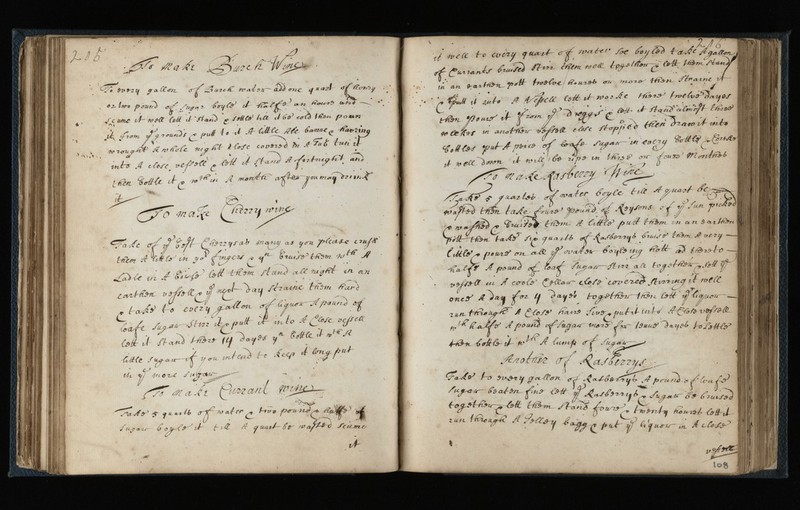 215
To Make Burch Wine
To every gallon of Burch water add one quart of Honey
or two pound of Sugar boyle it halfe an houre and
scume it well lett it stand & settle till it be cold then powre
it from yᵉ grounds & putt to it A little Ale barme & haveing
wrought A whole night close covered in A Tub tun it
into A close vessell & lett it stand A fortnight, and
then bottle it & wᵗʰin A month after you may drink
it
To make Cherry wine
Take of yᵉ best Cherryes as many as you please crush
them A little in yoʳ fingers & yⁿ bruise them wᵗʰ A
Ladle in A lett them stand all night in an
earthen vessell & yᵉ next day straine them hard
& take to every gallon of liquor A pound of
loafe sugar stirr it & putt it into A Close vessell
lett it stand there 14 dayes yⁿ bottle it wᵗʰ A
little sugar if you intend to keep it long put
in yᵉ more sugar
To make Currant wine
Take 5 quarts of water & two pound & halfe of
sugar boyle it till A quart be wasted scume
it
it well to every quart of water soe boyled take A gallon
of Currants bruised stirr them well together & lett them stand
in an earthen pott twelve houres or more then straine it
& putt it into A vessell lett it worke there twelve dayes
then powre it from yᵉ dreggs & lett it stand almost three
weekes in another vessell close stopped then draw it into
bottles put A peice of loafe sugar in every bottle & Corke
it well down it will be ripe in three or foure Months
To Make Rasberry Wine
Take 5 quartes of water boyle till A quart be
wasted then take foure pound of Reysons of yᵉ sun picked
& washed & bruised them A little putt them in an earthen
pott then take six quarts of Rasberrys bruise them A very
little & powre on all yᵉ water boyleing hott ad thereto
halfe A pound of loaf sugar stirr all together sett yᵉ
vessell in A coole Cellar close covered stirring it well
once A day for 4 dayes together then lett yᵉ liquor
run through A Close haire sive & put it into A Close vessell
wᵗʰ halfe A pound of sugar more for some dayes to settle
then bottle it wᵗʰ A lump of sugar
Another of Rasberrys
Take to every gallon of Rasberrys A pound of loafe
sugar beaten fine lett yᵉ Rasberrys & sugar be bruised
together & lett them stand foure & twenty houres lett it
run through A Jelley bagg & put yᵉ liquor in A close
vessell
108